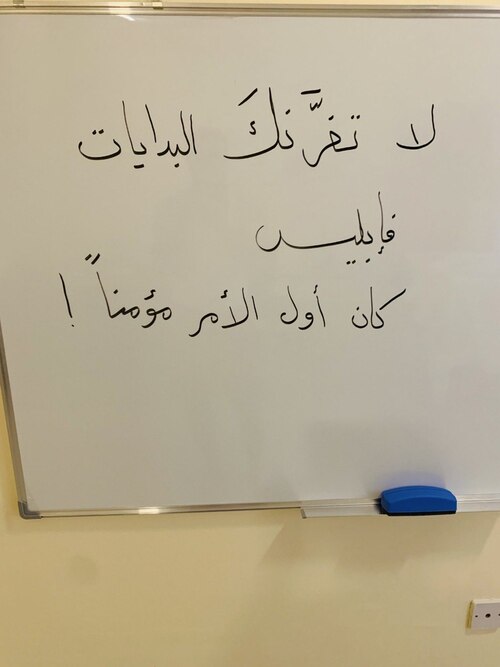 لا تغرَّنكَ البدايات
فإبليس
كان أول الأمر مؤمناً !